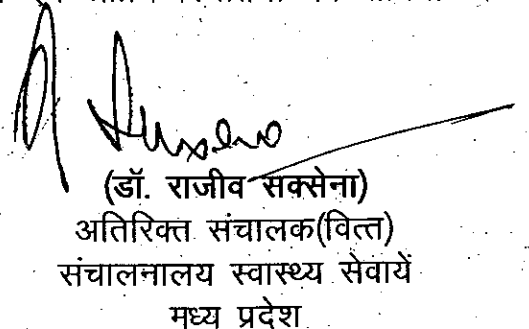 (डॉ. राजीव सक्सेना)
अतिरिक्त संचालक(वित्त)
संचालनालय स्वास्थ्य सेवायें
मध्य प्रदेश